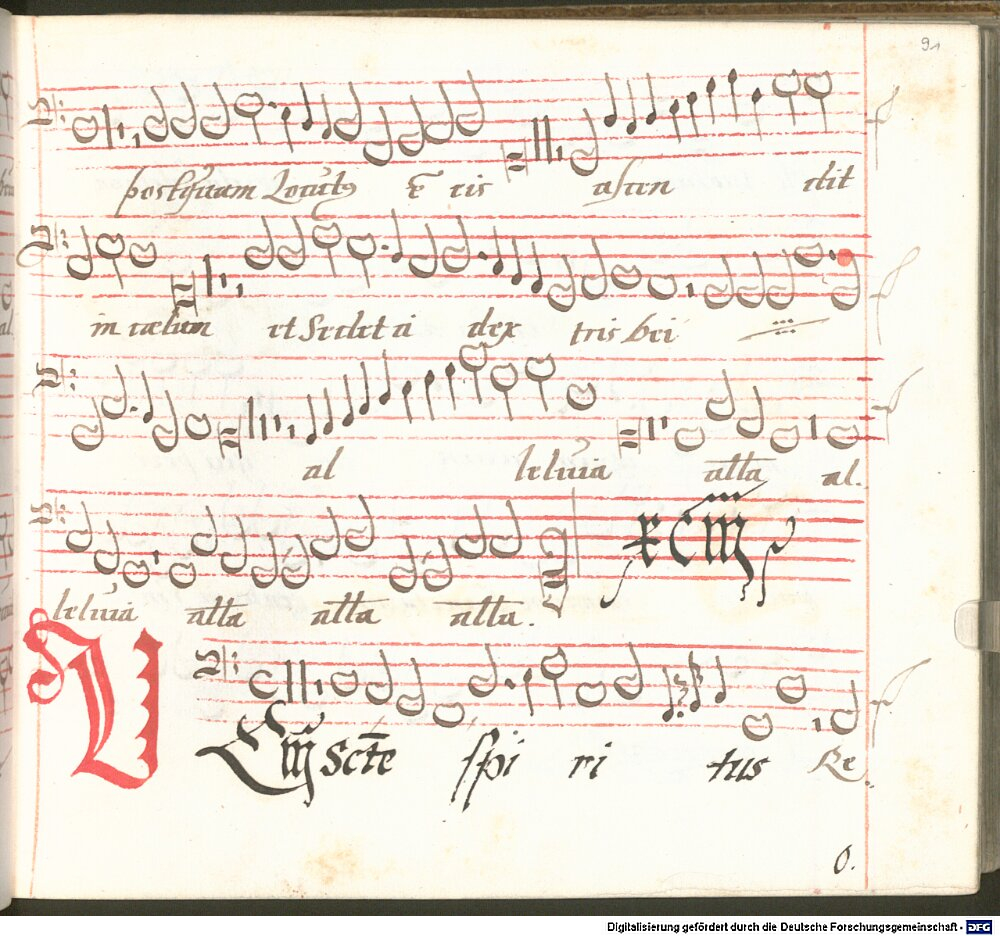 91
postquam Locutus est eis ascen dit
in cælum et Sedet a dex tris Dei
al leluia alla al.
leluia alla alla alla.
Veni Scte Spi ri tus Re
O.
Digitalisierung gefördert durch die Deutsche Forschungsgemeinschaft - DFG